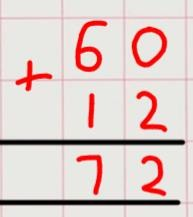 60
+ 12
72